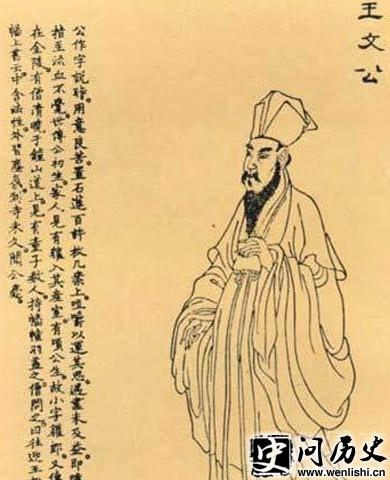 王文公
公作字說時用意良苦置石蓮百許枚几案上咀嚼以運其思遇盡未及益即嚙
指至流血不覺世傳公初生家人見有獾入其產室有頃公生故小字獾郎又傳
在金陵有僧清曉于鐘山道上見有童子数人持幡幢羽蓋之僧問之曰往迎王
幡上書云中含法性外習塵氛到寺未久聞公薨
史问历史
www.wenlishi.cn